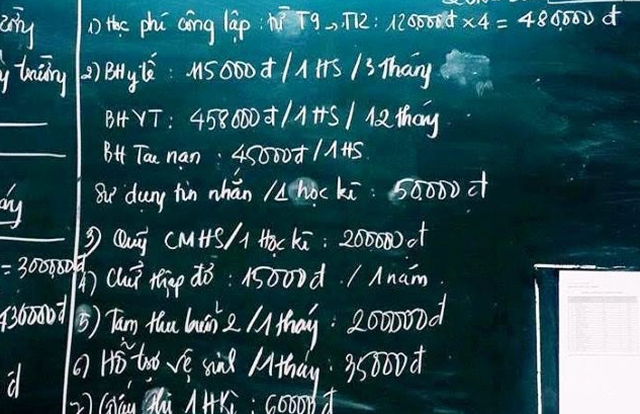 ường
1) Học phí công lập: từ T9 → T12: 120000đ x 4 = 480,000 đ
2) BH y tế : 115000đ / 1 HS / 3 tháng
BHYT: 458000đ / 1 HS / 12 tháng
BH Tai nạn : 45000đ / 1HS
Sử dụng tin nhắn / 1 học kì : 50000 đ
3) Quỹ CMHS / 1 Học kì : 200000 đ
= 300000đ
4) Chữ thập đỏ : 15000đ / 1 năm
430000đ
5) Tạm thu buổi 2 / 1 tháng : 200000đ
6) Hỗ trợ vệ sinh / 1 tháng : 35000đ
đ
7) Giấy thi 1 HKì : 60000 đ